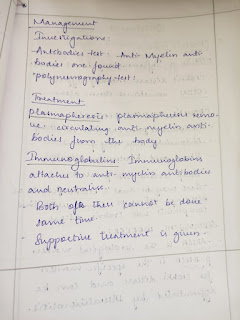 Management
Investigations:
- Antibodies test: Anti Myelin anti-
bodies are found
- polysomnography test:
Treatment
plasmapheresis: plasmapheresis remo-
ve circulating anti-myelin anti-
bodies from the body.
Immunoglobulins: Immunoglobins
attaches to anti-myelin antibodies
and neutralise.
- Both of these cannot be done
same time.
- Supportive treatment is given.